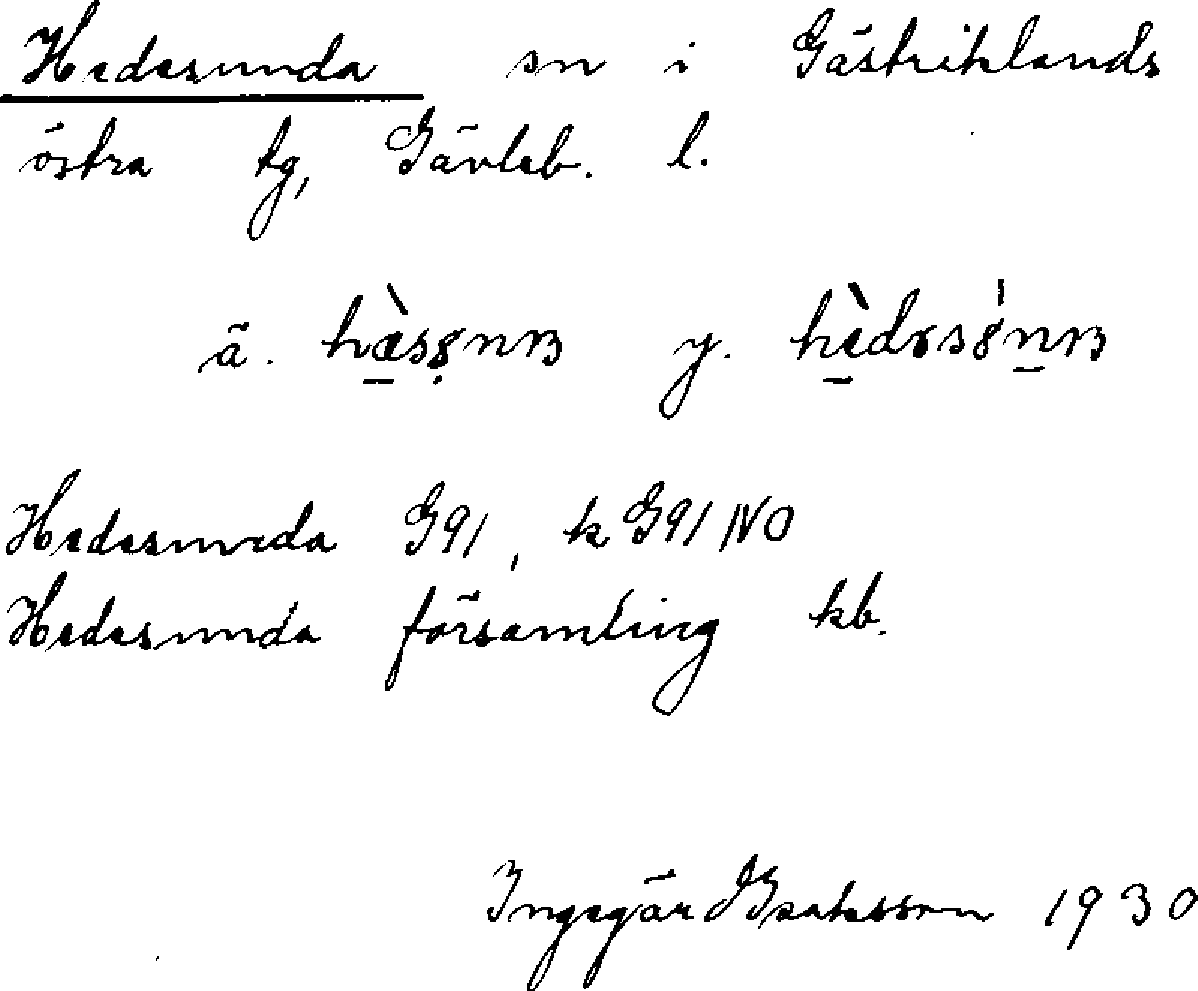 Hedesunda sn i Gästriklands
östra tg, Gävleb. l.
ä. y.
Hedesunda G91, k G91 NO
Hedesunda församling kb.
Ingegär 1930